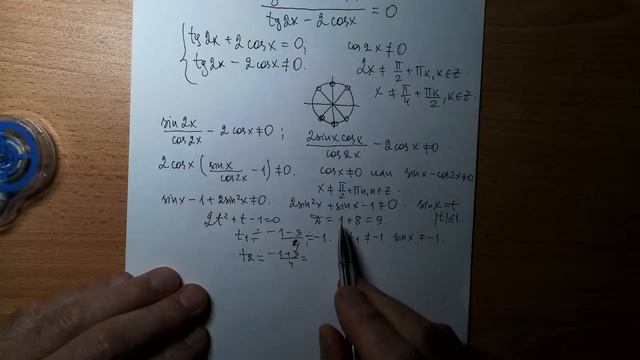 tg2x − 2cosx = 0
{ tg2x + 2cosx = 0, cos2x ≠ 0
tg2x − 2cosx ≠ 0. 2x ≠ π/2 + πk, k∈Z.
x ≠ π/4 + πk/2, k∈Z.
sin2x/cos2x − 2cosx ≠ 0 ; 2sinx cosx/cos2x − 2cosx ≠ 0.
2cosx (sinx/cos2x − 1) ≠ 0. cosx ≠ 0 или sinx − cos2x ≠ 0
x ≠ π/2 + πn, n∈Z.
sinx − 1 + 2sin²x ≠ 0. 2sin²x + sinx − 1 ≠ 0. sinx = t
|t| ≤ 1.
2t² + t − 1 = 0 D = 1 + 8 = 9.
t₁ = −1−3/4 = −1. t₁ ≠ −1 sinx ≠ −1.
t₂ = −1+3/4 =